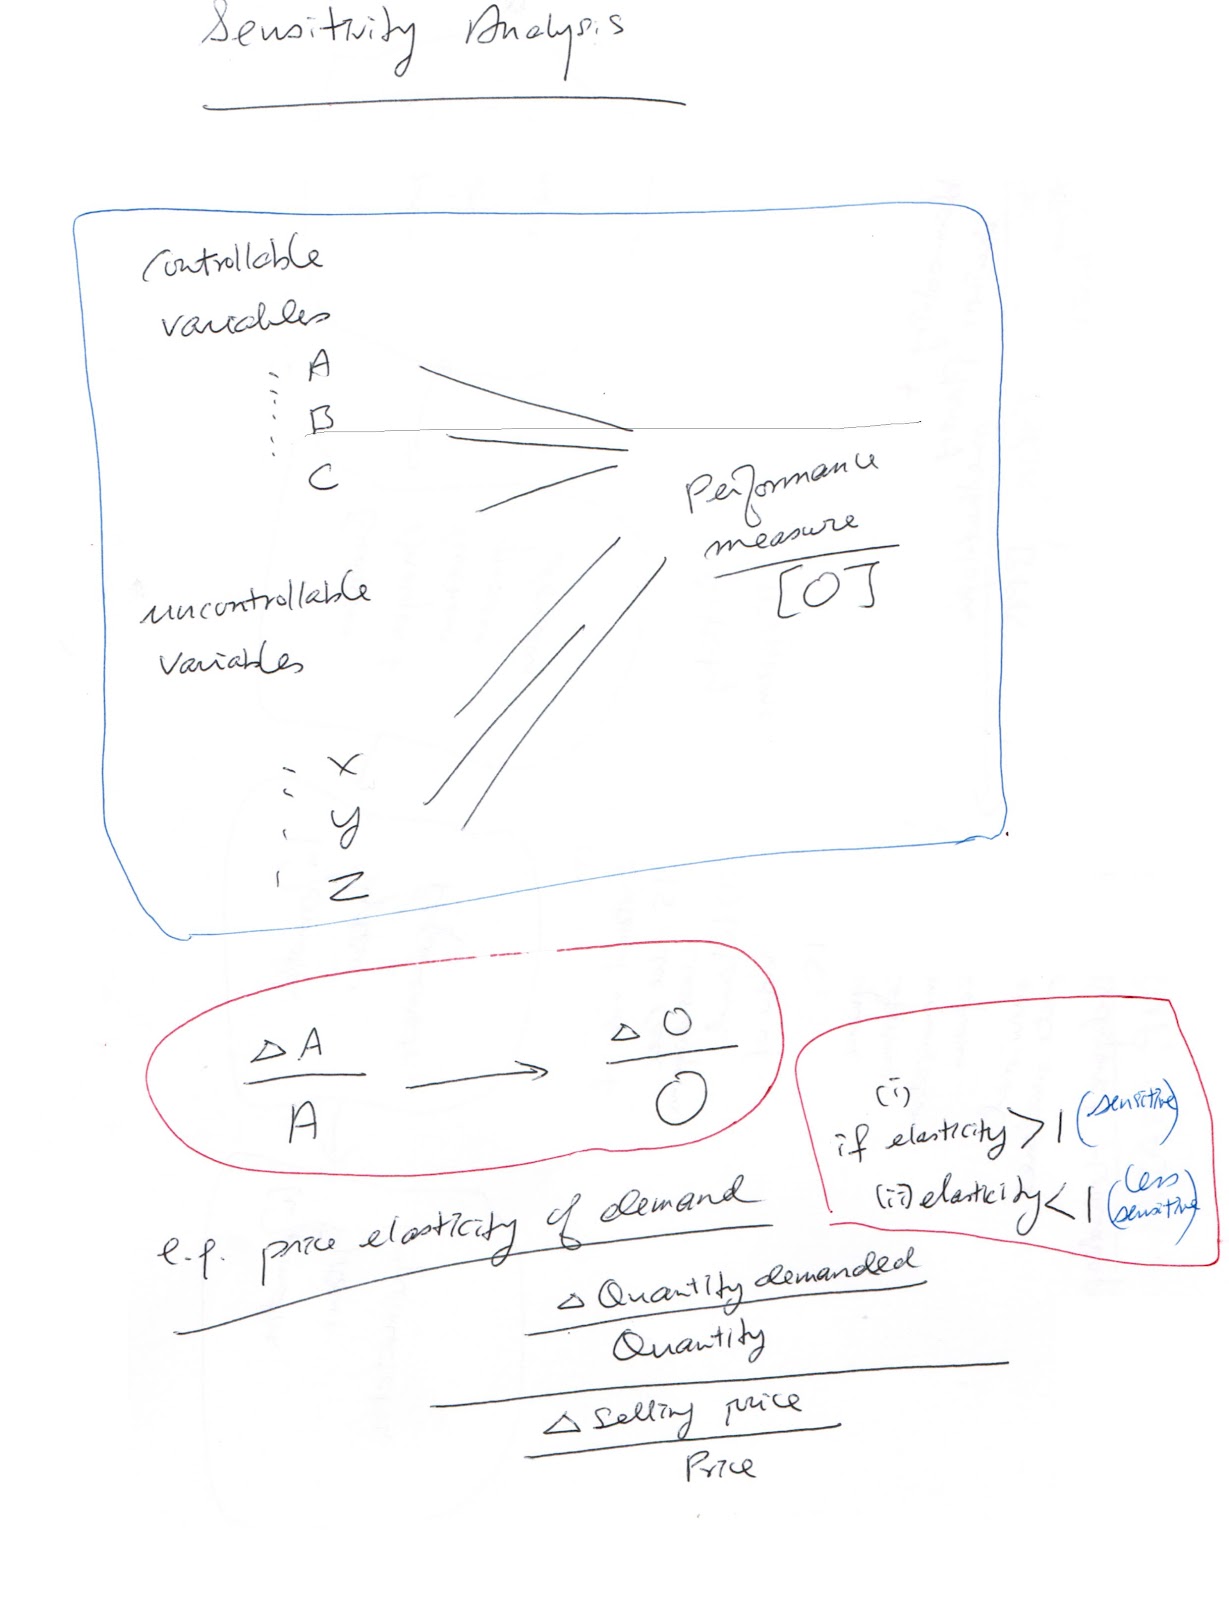 Sensitivity Analysis
Controllable
variables
A
B
C
Performance
measure
[O]
uncontrollable
variables
X
y
Z
△A
A
△O
O
(i)
if elasticity > 1 (sensitive)
(ii) elasticity < 1 (less
sensitive)
e.g. price elasticity of demand
△ Quantity demanded
Quantity
△ Selling price
Price